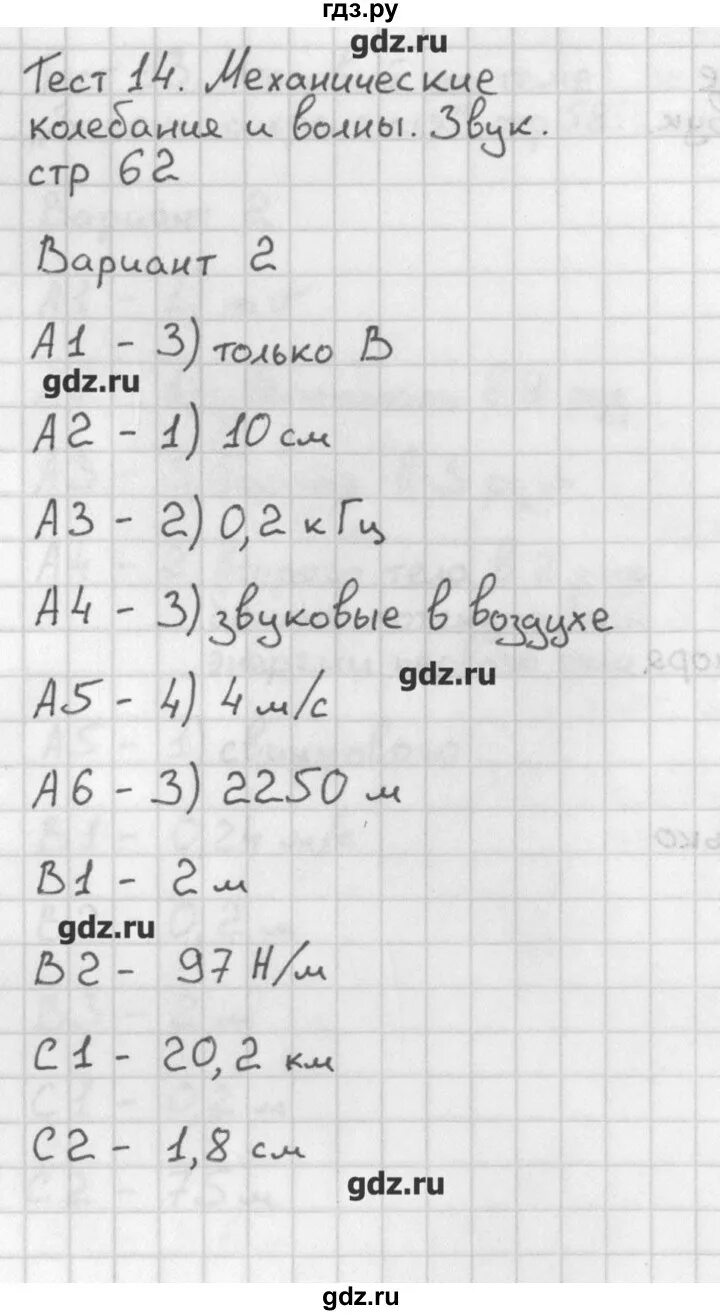 гдз.ру
gdz.ru
Тест 14. Механические
колебания и волны. Звук.
стр 62
Вариант 2
А1 - 3) только В
gdz.ru
А2 - 1) 10 см
А3 - 2) 0,2 кГц
А4 - 3) звуковые в воздухе
gdz.ru
А5 - 4) 4 м/с
А6 - 3) 2250 м
В1 - 2 м
gdz.ru
В2 - 97 Н/м
С1 - 20,2 км
С2 - 1,8 см
gdz.ru
gdz.ru